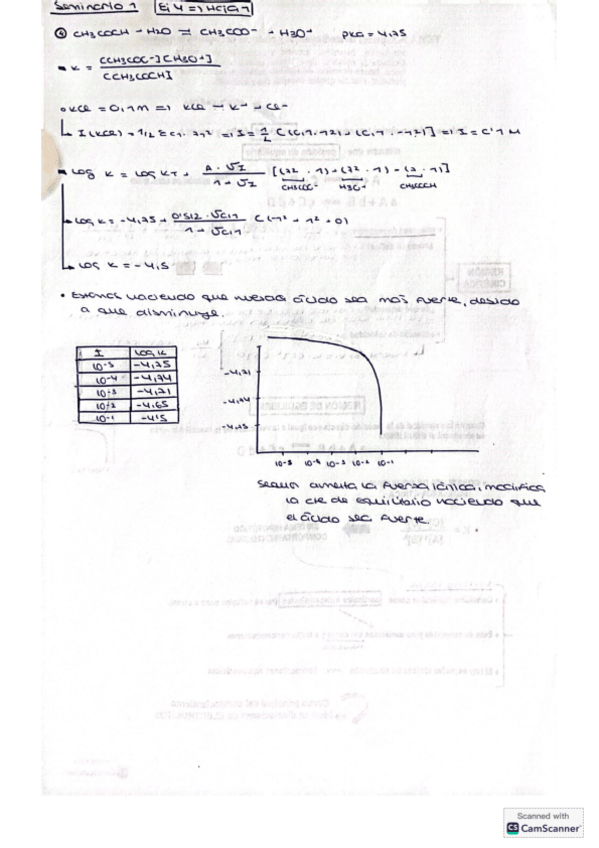 Seminario 1 Ej 4 => Hoja 1
④ CH3COOH + H2O ⇌ CH3COO- + H3O+ PKa = 4,75
K = [CH3COO-][H3O+] / [CH3COOH]
KCl = 0,1M => KCl → K+ + Cl-
I(KCl) = 1/2 Σ ci · zi² => I = 1/2 [(0,1 · 1²) + (0,1 · -1²)] => I = 0'1 M
Log K = Log KT + A · √I / 1 + √I [(z² · 1) + (z² · 1) - (z · 1)]
CH3COO- H3O+ CH3COOH
Log K = -4,75 + 0'512 · √0,1 / 1 + √0,1 (-1² + 1² + 0)
Log K = -4,5
• Estamos haciendo que nuestro ácido sea más fuerte, debido
a que disminuye.
I Log K
10-5 -4,75
10-4 -4,74
10-3 -4,71
10-2 -4,65
10-1 -4'5
-4,71
-4,74
-4,75
10-5 10-4 10-3 10-2 10-1
Según aumenta la fuerza iónica, modifica
la cte de equilibrio haciendo que
el ácido sea fuerte.
Scanned with
CS CamScanner